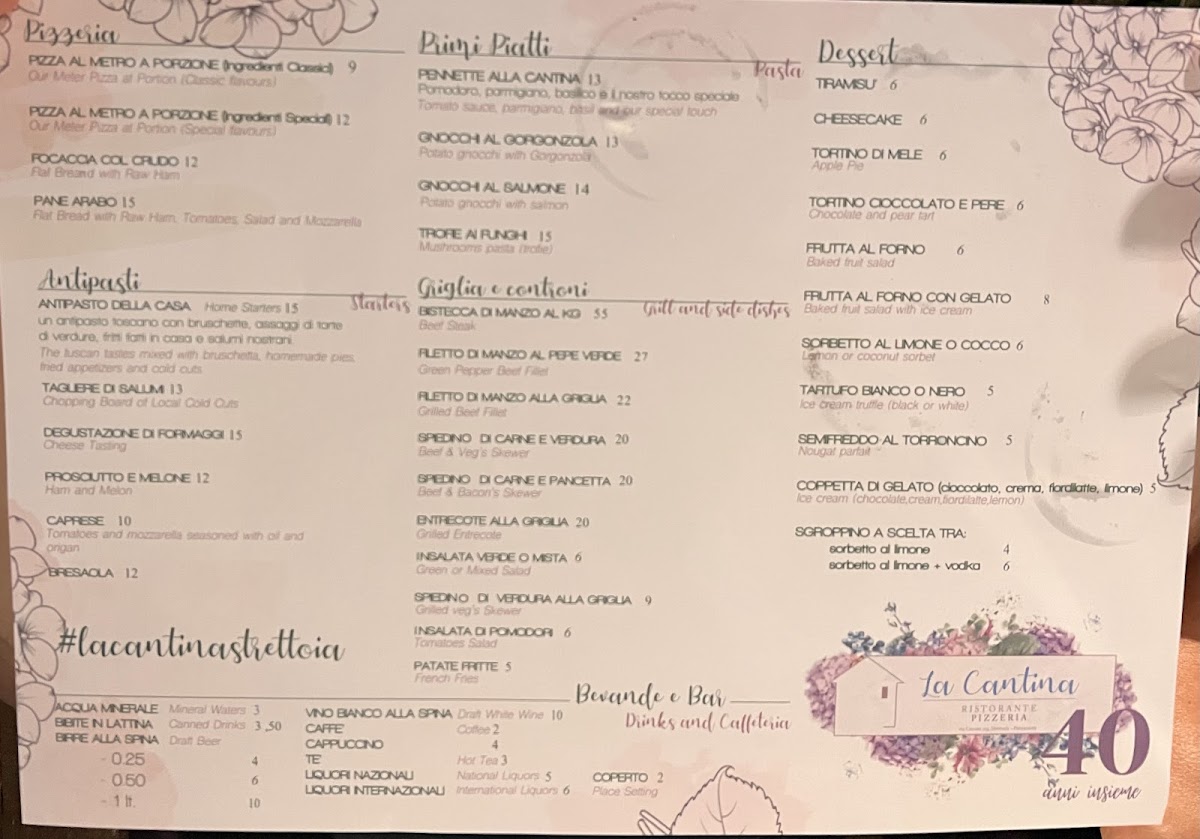 Pizzeria
PIZZA AL METRO A PORZIONE (Ingredienti Classici) 9
Our Meter Pizza at Portion (Classic flavours)
PIZZA AL METRO A PORZIONE (Ingredienti Speciali) 12
Our Meter Pizza at Portion (Special flavours)
FOCACCIA COL CRUDO 12
Flat Breand with Raw Ham
PANE ARABO 15
Flat Bread with Raw Ham, Tomatoes, Salad and Mozzarella
Antipasti
Starters
ANTIPASTO DELLA CASA Home Starters 15
un antipasto toscano con bruschette, assaggi di torte
di verdure, fritti fatti in casa e salumi nostrani.
The tuscan tastes mixed with bruschetta, homemade pies,
fried appetizers and cold cuts
TAGLIERE DI SALUMI 13
Chopping Board of Local Cold Cuts
DEGUSTAZIONE DI FORMAGGI 15
Cheese Tasting
PROSCIUTTO E MELONE 12
Ham and Melon
CAPRESE 10
Tomatoes and mozzarella seasoned with oil and
origan
BRESAOLA 12
#lacantinastrettoia
Primi Piatti
Pasta
PENNETTE ALLA CANTINA 13
Pomodoro, parmigiano, basilico e il nostro tocco speciale
Tomato sauce, parmigiano, basil and our special touch
GNOCCHI AL GORGONZOLA 13
Potato gnocchi with Gorgonzola
GNOCCHI AL SALMONE 14
Potato gnocchi with salmon
TROFIE AI FUNGHI 15
Mushrooms pasta (trofie)
Griglia e controni
Grill and side dishes
BISTECCA DI MANZO AL KG 55
Beef Steak
FILETTO DI MANZO AL PEPE VERDE 27
Green Pepper Beef Fillet
FILETTO DI MANZO ALLA GRIGLIA 22
Grilled Beef Fillet
SPIEDINO DI CARNE E VERDURA 20
Beef & Veg's Skewer
SPIEDINO DI CARNE E PANCETTA 20
Beef & Bacon's Skewer
ENTRECOTE ALLA GRIGLIA 20
Grilled Entrecote
INSALATA VERDE O MISTA 6
Green or Mixed Salad
SPIEDINO DI VERDURA ALLA GRIGLIA 9
Grilled veg's Skewer
INSALATA DI POMODORI 6
Tomatoes Salad
PATATE FRITTE 5
French Fries
Dessert
TIRAMISU' 6
CHEESECAKE 6
TORTINO DI MELE 6
Apple Pie
TORTINO CIOCCOLATO E PERE 6
Chocolate and pear tart
FRUTTA AL FORNO 6
Baked fruit salad
FRUTTA AL FORNO CON GELATO 8
Baked fruit salad with ice cream
SORBETTO AL LIMONE O COCCO 6
Lemon or coconut sorbet
TARTUFO BIANCO O NERO 5
Ice cream truffle (black or white)
SEMIFREDDO AL TORRONCINO 5
Nougat parfait
COPPETTA DI GELATO (cioccolato, crema, fiordilatte, limone) 5
Ice cream (chocolate,cream,fiordilatte,lemon)
SGROPPINO A SCELTA TRA:
sorbetto al limone 4
sorbetto al limone + vodka 6
Bevande e Bar
Drinks and Caffeteria
ACQUA MINERALE Mineral Waters 3
BIBITE IN LATTINA Canned Drinks 3 ,50
BIRRE ALLA SPINA Draft Beer
- 0.25 4
- 0.50 6
- 1 lt. 10
VINO BIANCO ALLA SPINA Draft White Wine 10
CAFFE' Coffee 2
CAPPUCCINO 4
TE' Hot Tea 3
LIQUORI NAZIONALI National Liquors 5
LIQUORI INTERNAZIONALI International Liquors 6
COPERTO 2
Place Setting
La Cantina
RISTORANTE
PIZZERIA
40
anni insieme